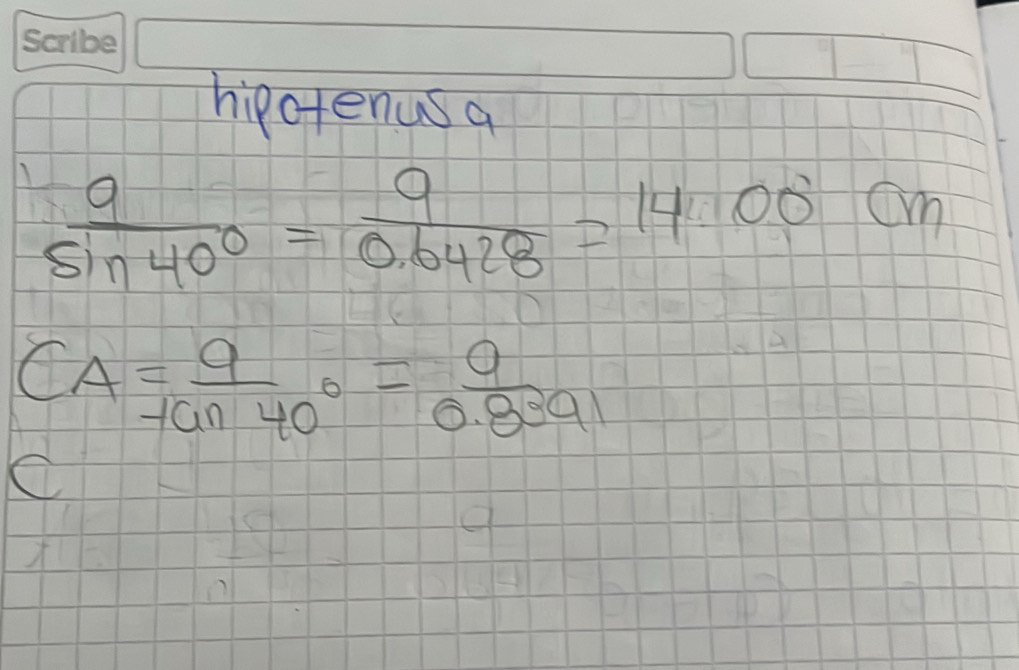 Scribe
hipotenusa
9/sin 40° = 9/0.6428 = 14.00 cm
CA = 9/tan 40° = 9/0.8391
C